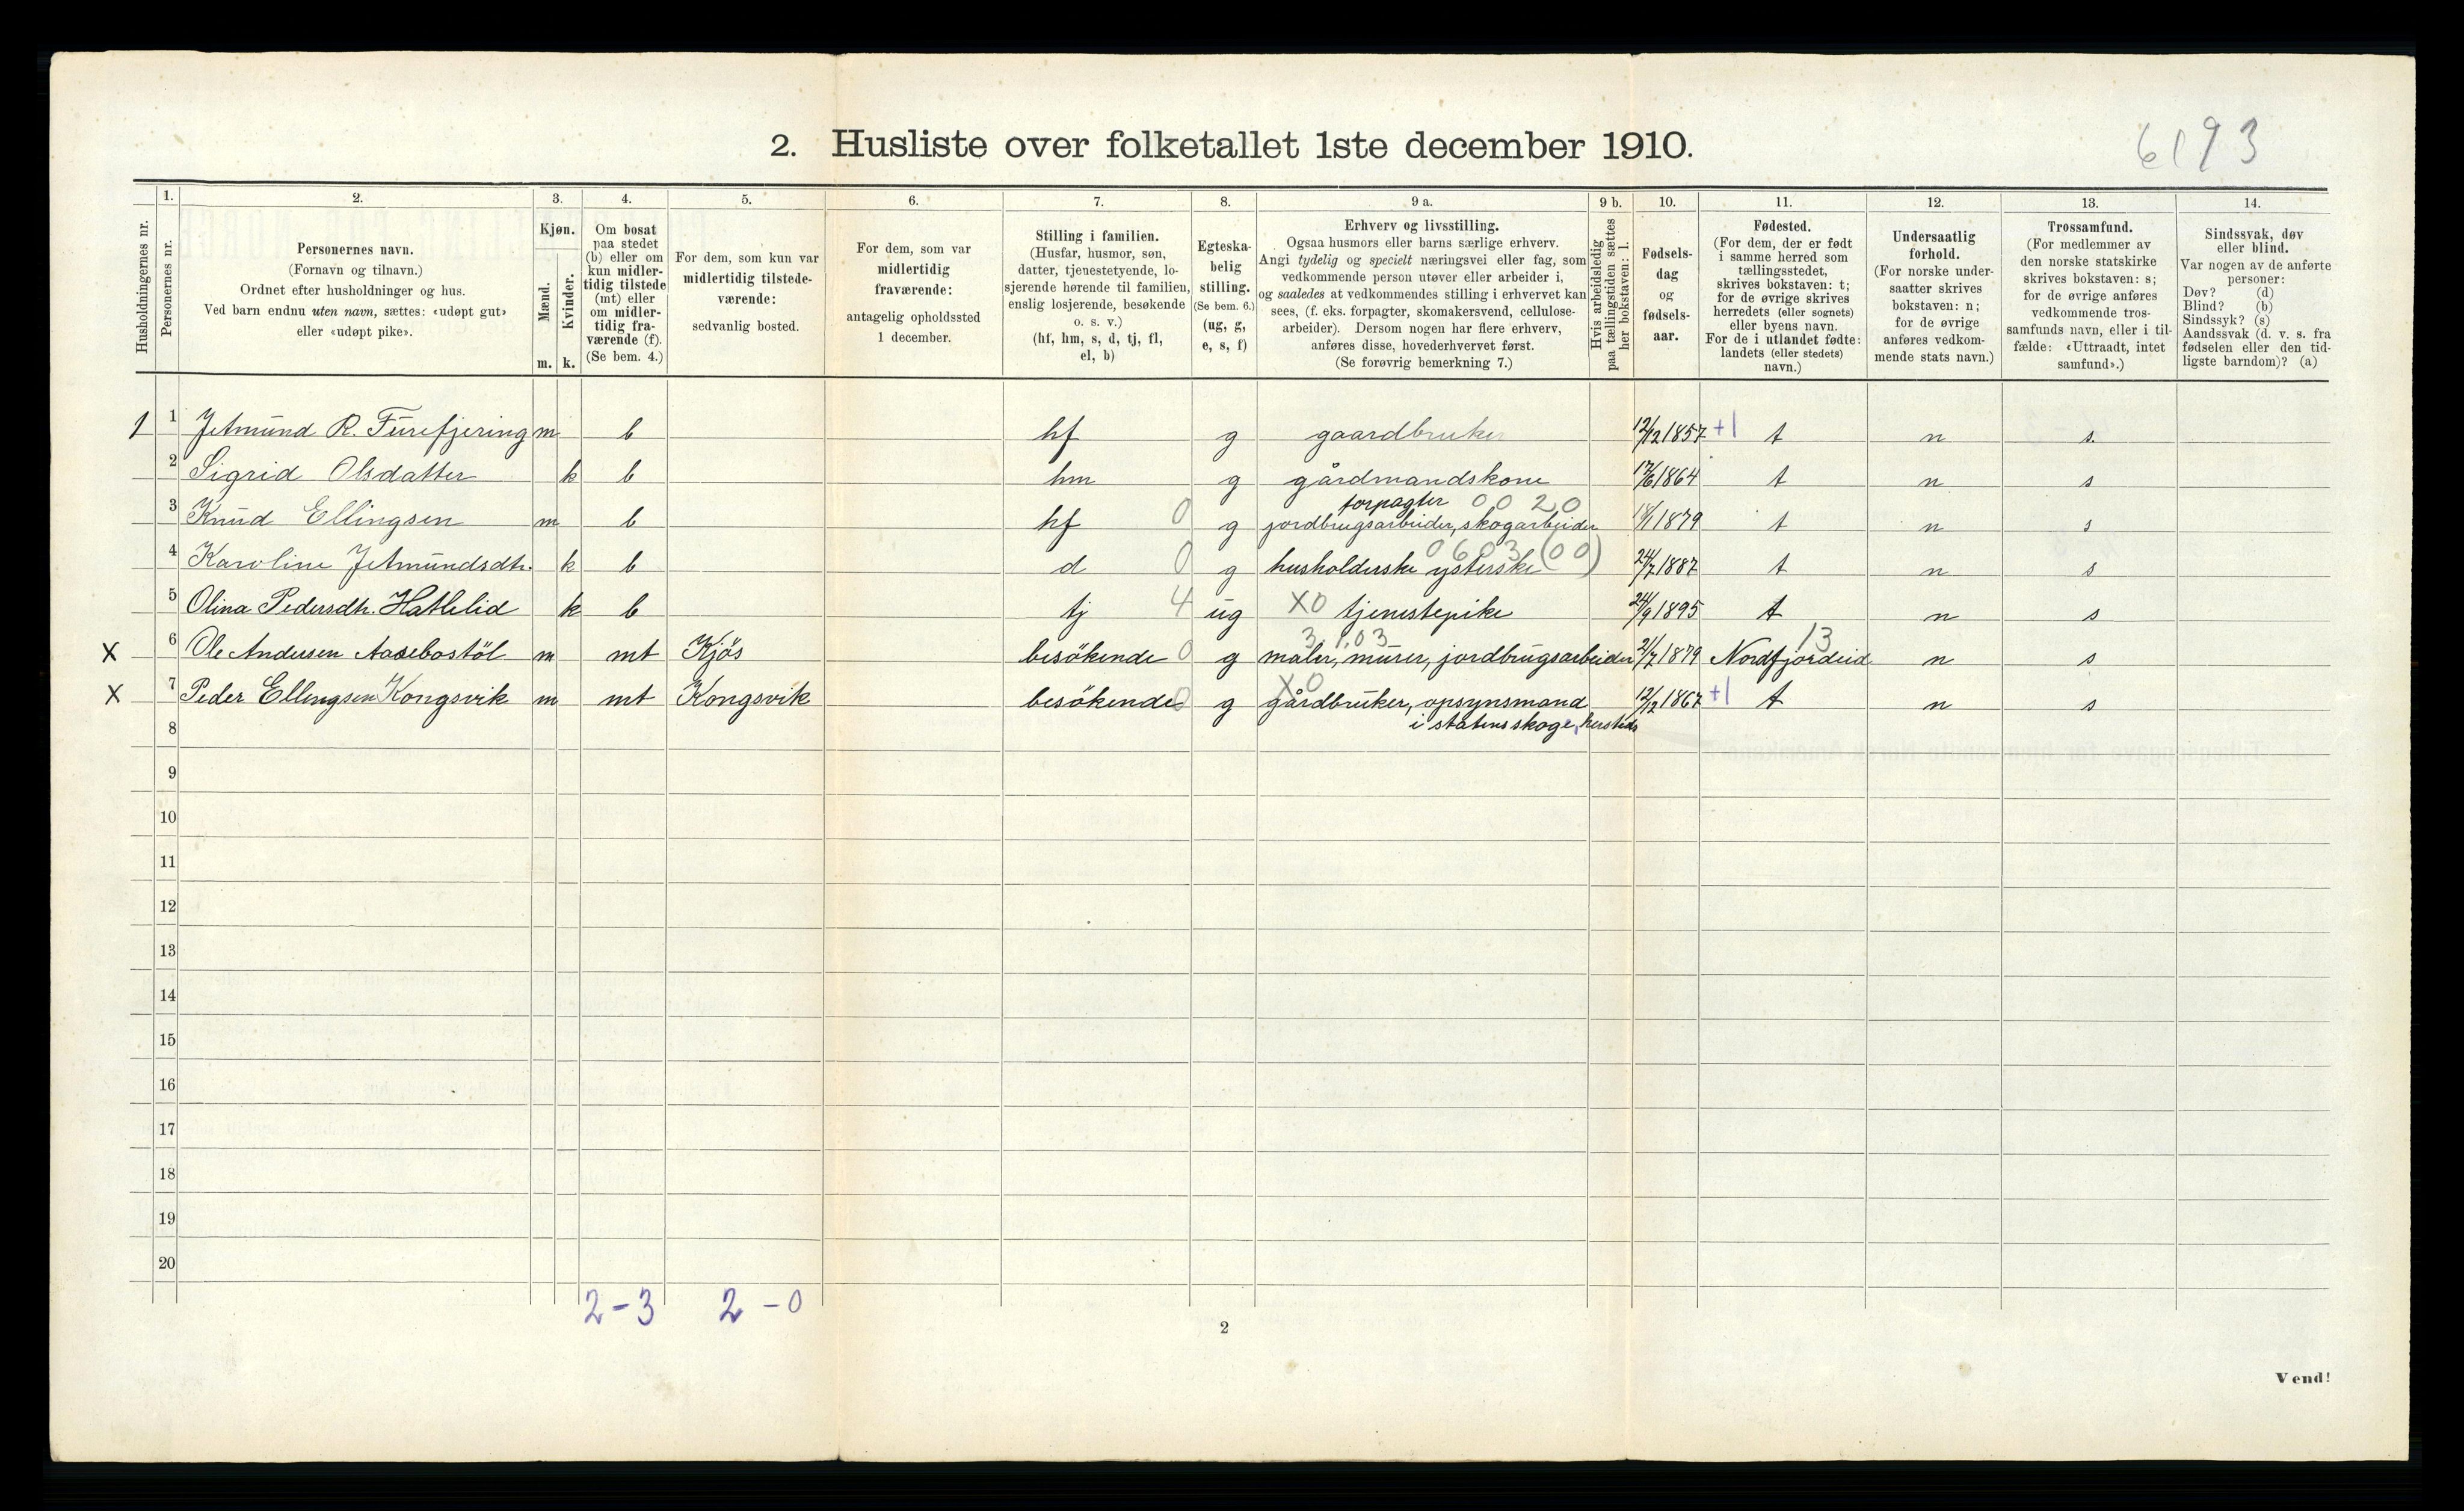 2. Husliste over folketallet 1ste december 1910.
6193
Husholdningernes nr.
1.
Personernes nr.
2.
Personernes navn.
(Fornavn og tilnavn.)
Ordnet efter husholdninger og hus.
Ved barn endnu uten navn, sættes: «udøpt gut»
eller «udøpt pike».
3.
Kjøn.
Mænd.
Kvinder.
m. k.
4.
Om bosat
paa stedet
(b) eller om
kun midler-
tidig tilstede
(mt) eller
om midler-
tidig fra-
værende (f).
(Se bem. 4.)
5.
For dem, som kun var
midlertidig tilstede-
værende:
sedvanlig bosted.
6.
For dem, som var
midlertidig
fraværende:
antagelig opholdssted
1 december.
7.
Stilling i familien.
(Husfar, husmor, søn,
datter, tjenestetyende, lo-
sjerende hørende til familien,
enslig losjerende, besøkende
o. s. v.)
(hf, hm, s, d, tj, fl,
el, b)
8.
Egteska-
belig
stilling.
(Se bem. 6.)
(ug, g,
e, s, f)
9 a.
Erhverv og livsstilling.
Ogsaa husmors eller barns særlige erhverv.
Angi tydelig og specielt næringsvei eller fag, som
vedkommende person utøver eller arbeider i,
og saaledes at vedkommendes stilling i erhvervet kan
sees, (f. eks. forpagter, skomakersvend, cellulose-
arbeider). Dersom nogen har flere erhverv,
anføres disse, hovederhvervet først.
(Se forøvrig bemerkning 7.)
9 b.
Hvis arbeidsledig
paa tællingstiden sættes
her bokstaven: l.
10.
Fødsels-
dag
og
fødsels-
aar.
11.
Fødested.
(For dem, der er født
i samme herred som
tællingsstedet,
skrives bokstaven: t;
for de øvrige skrives
herredets (eller sognets)
eller byens navn.
For de i utlandet fødte:
landets (eller stedets)
navn.)
12.
Undersaatlig
forhold.
(For norske under-
saatter skrives
bokstaven: n;
for de øvrige
anføres vedkom-
mende stats navn.)
13.
Trossamfund.
(For medlemmer av
den norske statskirke
skrives bokstaven: s;
for de øvrige anføres
vedkommende tros-
samfunds navn, eller i til-
fælde: «Uttraadt, intet
samfund».)
14.
Sindssvak, døv
eller blind.
Var nogen av de anførte
personer:
Døv? (d)
Blind? (b)
Sindssyk? (s)
Aandssvak (d. v. s. fra
fødselen eller den tid-
ligste barndom)? (a)
1 1 Jetmund R. Furefjering m b hf g gaardbruker 12/12 1857 +1 t n s.
2 Sigrid Olsdatter k b hm g gårdmandskone 17/6 1864 t n s
forpagter 0 0 2 0
3 Knud Ellingsen m b hf 0 g jordbrugsarbeider, skogarbeider 18/1 1879 t n s
0 6 0 3 (0 0)
4 Karoline Jetmundsdtr. k b d 0 g husholderske ysterske 24/7 1887 t n s
5 Olina Pedersdtr. Hatlelid k b tj 4 ug X0 tjenestepike 24/9 1895 t n s
3, 1, 0 3 13
X 6 Ole Andersen Aasebostöl m mt Kjös besökende 0 g maler, murer, jordbrugsarbeider 21/7 1879 Nordfjordeid n s
X0
X 7 Peder Ellingsen Kongsvik m mt Kongsvik besökende 0 g gårdbruker, opsynsmand 12/12 1867 +1 t n s
8 i statens skoge, hersteds
9
10
11
12
13
14
15
16
17
18
19
20
2-3 2-0
2
Vend!